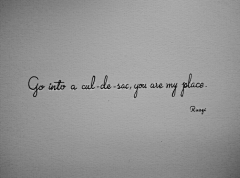 Go into a cul-de-sac, you are my place.